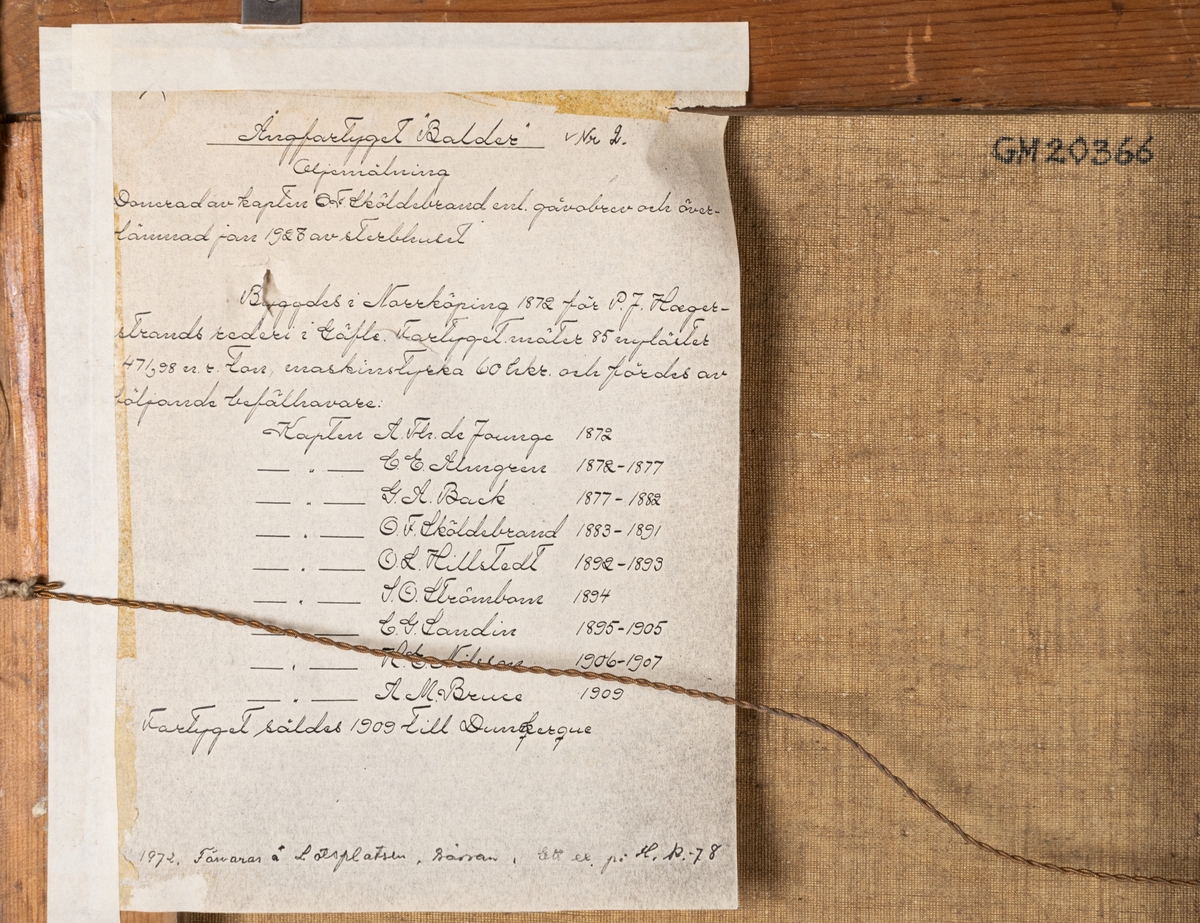 Ångfartyget "Balder" Nr 2.
Oljemålning
Donerad av kapten O F Sköldebrand enl. gåvobrev och över-
lämnad jan 1928 av sterbhuset
Byggdes i Norrköping 1872 för P. J. Hæger-
strands rederi i Gäfle. Fartyget mäter 85 nyläster
n. r. ton, maskinstyrka 60 hkr. och fördes av
följande befälhavare:
Kapten A. Th. de Jounge 1872
— " — C E. Almgren 1872-1877
— " — G. A. Back 1877-1882
— " — O. F. Sköldebrand 1883-1891
— " — O. L. Hillstedt 1892-1893
— " — S. O. Strömbom 1894
— " — C. G. Sandin 1895-1905
— " — H. E. Nilsson 1906-1907
— " — A M. Bruce 1909
Fartyget såldes 1909 till Dunkerque
1972. Förvaras å Lotsplatsen, ett ex. på H. K. -78
GM20366